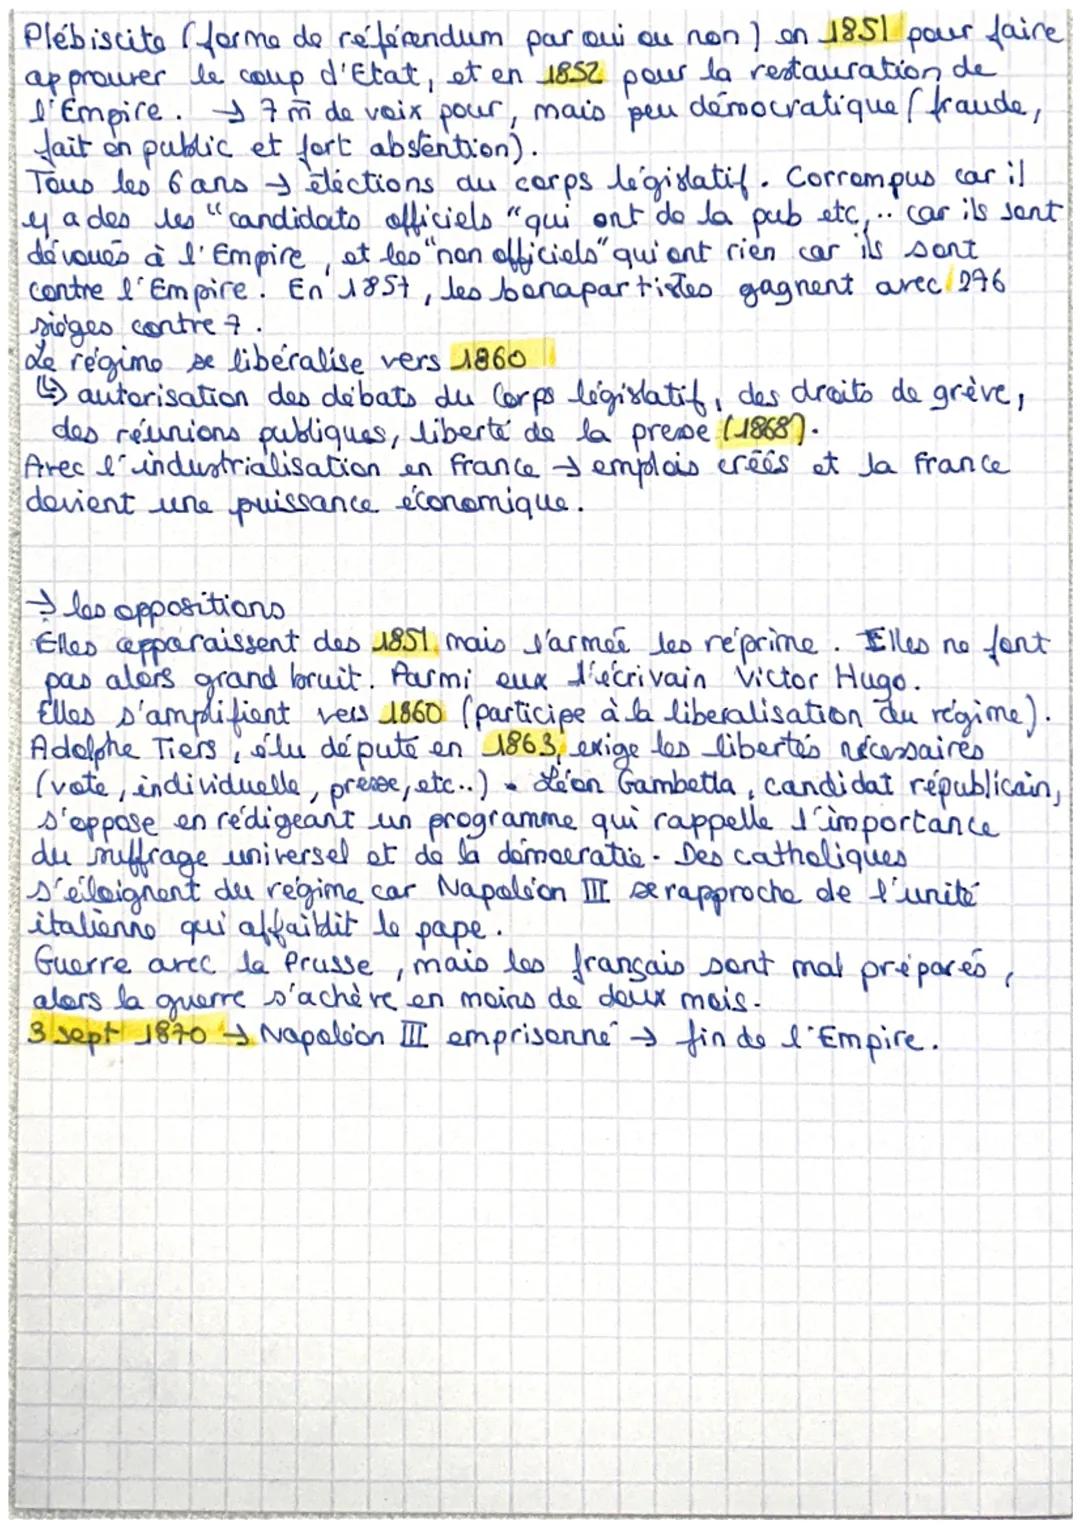 Plébiscite (forme de référendum par oui ou non) en 1851 pour faire
approuver le coup d'Etat, et en 1852 pour la restauration de
l'Empire. → 7 m̄ de voix pour, mais peu démocratique (fraude,
fait en public et fort abstention).
Tous les 6 ans → éléctions du corps législatif. Corrompus car il
y a des les "candidats officiels "qui ont de la pub etc,.. car ils sont
dévoués à l'Empire, et les "non officiels" qui ont rien car ils sont
contre l'Empire. En 1857, les bonapartistes gagnent avec 276
sièges contre 7.
Le régime se libéralise vers 1860
↳ autorisation des débats du Corps législatif, des droits de grève,
des réunions publiques, liberté de la presse (1868).
Avec l'industrialisation en France → emplois créés et la France
devient une puissance économique.
→ les oppositions
Elles apparaissent des 1851 mais l'armée les réprime. Elles ne font
pas alors grand bruit. Parmi eux l'écrivain Victor Hugo.
Elles s'amplifient vers 1860 (participe à la liberalisation du régime).
Adolphe Tiers, élu député en 1863, exige les libertés nécessaires
(vote, individuelle, presse, etc..). Léon Gambetta, candidat républicain,
s'oppose en rédigeant un programme qui rappelle l'importance
du suffrage universel et de la démocratie. Des catholiques
s'éloignent du régime car Napoléon III se rapproche de l'unité
italienne qui affaiblit le pape.
Guerre avec la Prusse, mais les français sont mal préparés,
alors la guerre s'achève en moins de deux mois.
3 sept 1870 → Napoléon III emprisonné → fin de l'Empire.